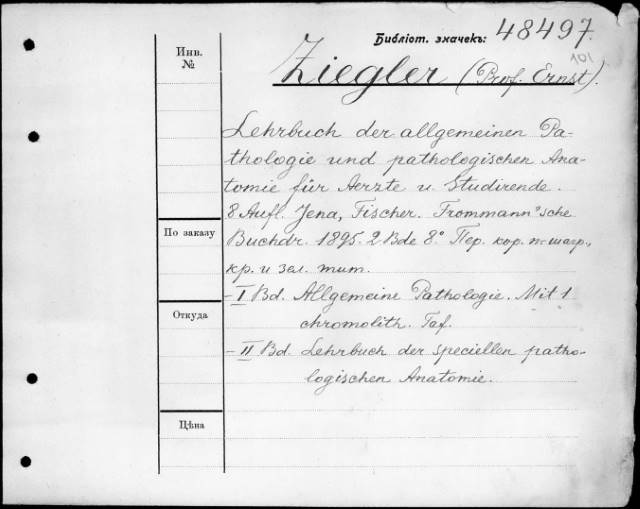 Инв. №
Библіот. значекъ: 48497.
101
Ziegler (Prof. Ernst).
Lehrbuch der allgemeinen Pa-
thologie und pathologischen Ana-
tomie für Aerzte u. Studirende.
8 Aufl. Jena, Fischer. Frommann'sche
По заказу
Buchdr. 1895. 2 Bde 8° Пер. кор. п-шагр.,
кр. и зел. тит.
- I Bd. Allgemeine Pathologie. Mit 1
Откуда
chromolith. Taf.
- II Bd. Lehrbuch der speciellen patho-
logischen Anatomie.
Цѣна